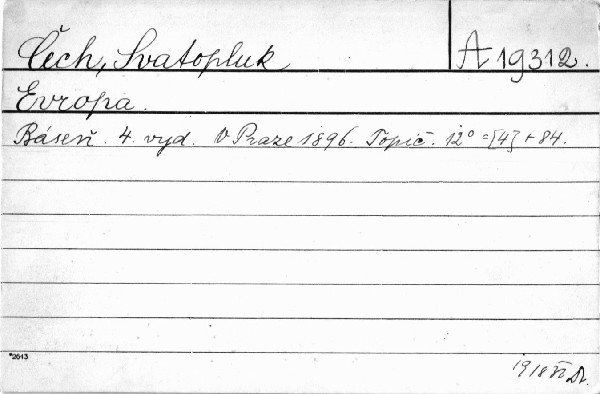 Čech, Svatopluk
A 19312.
Evropa.
Báseň. 4. vyd. V Praze 1896. Topič. 12° =[4] + 84.
*2613
1918 VI